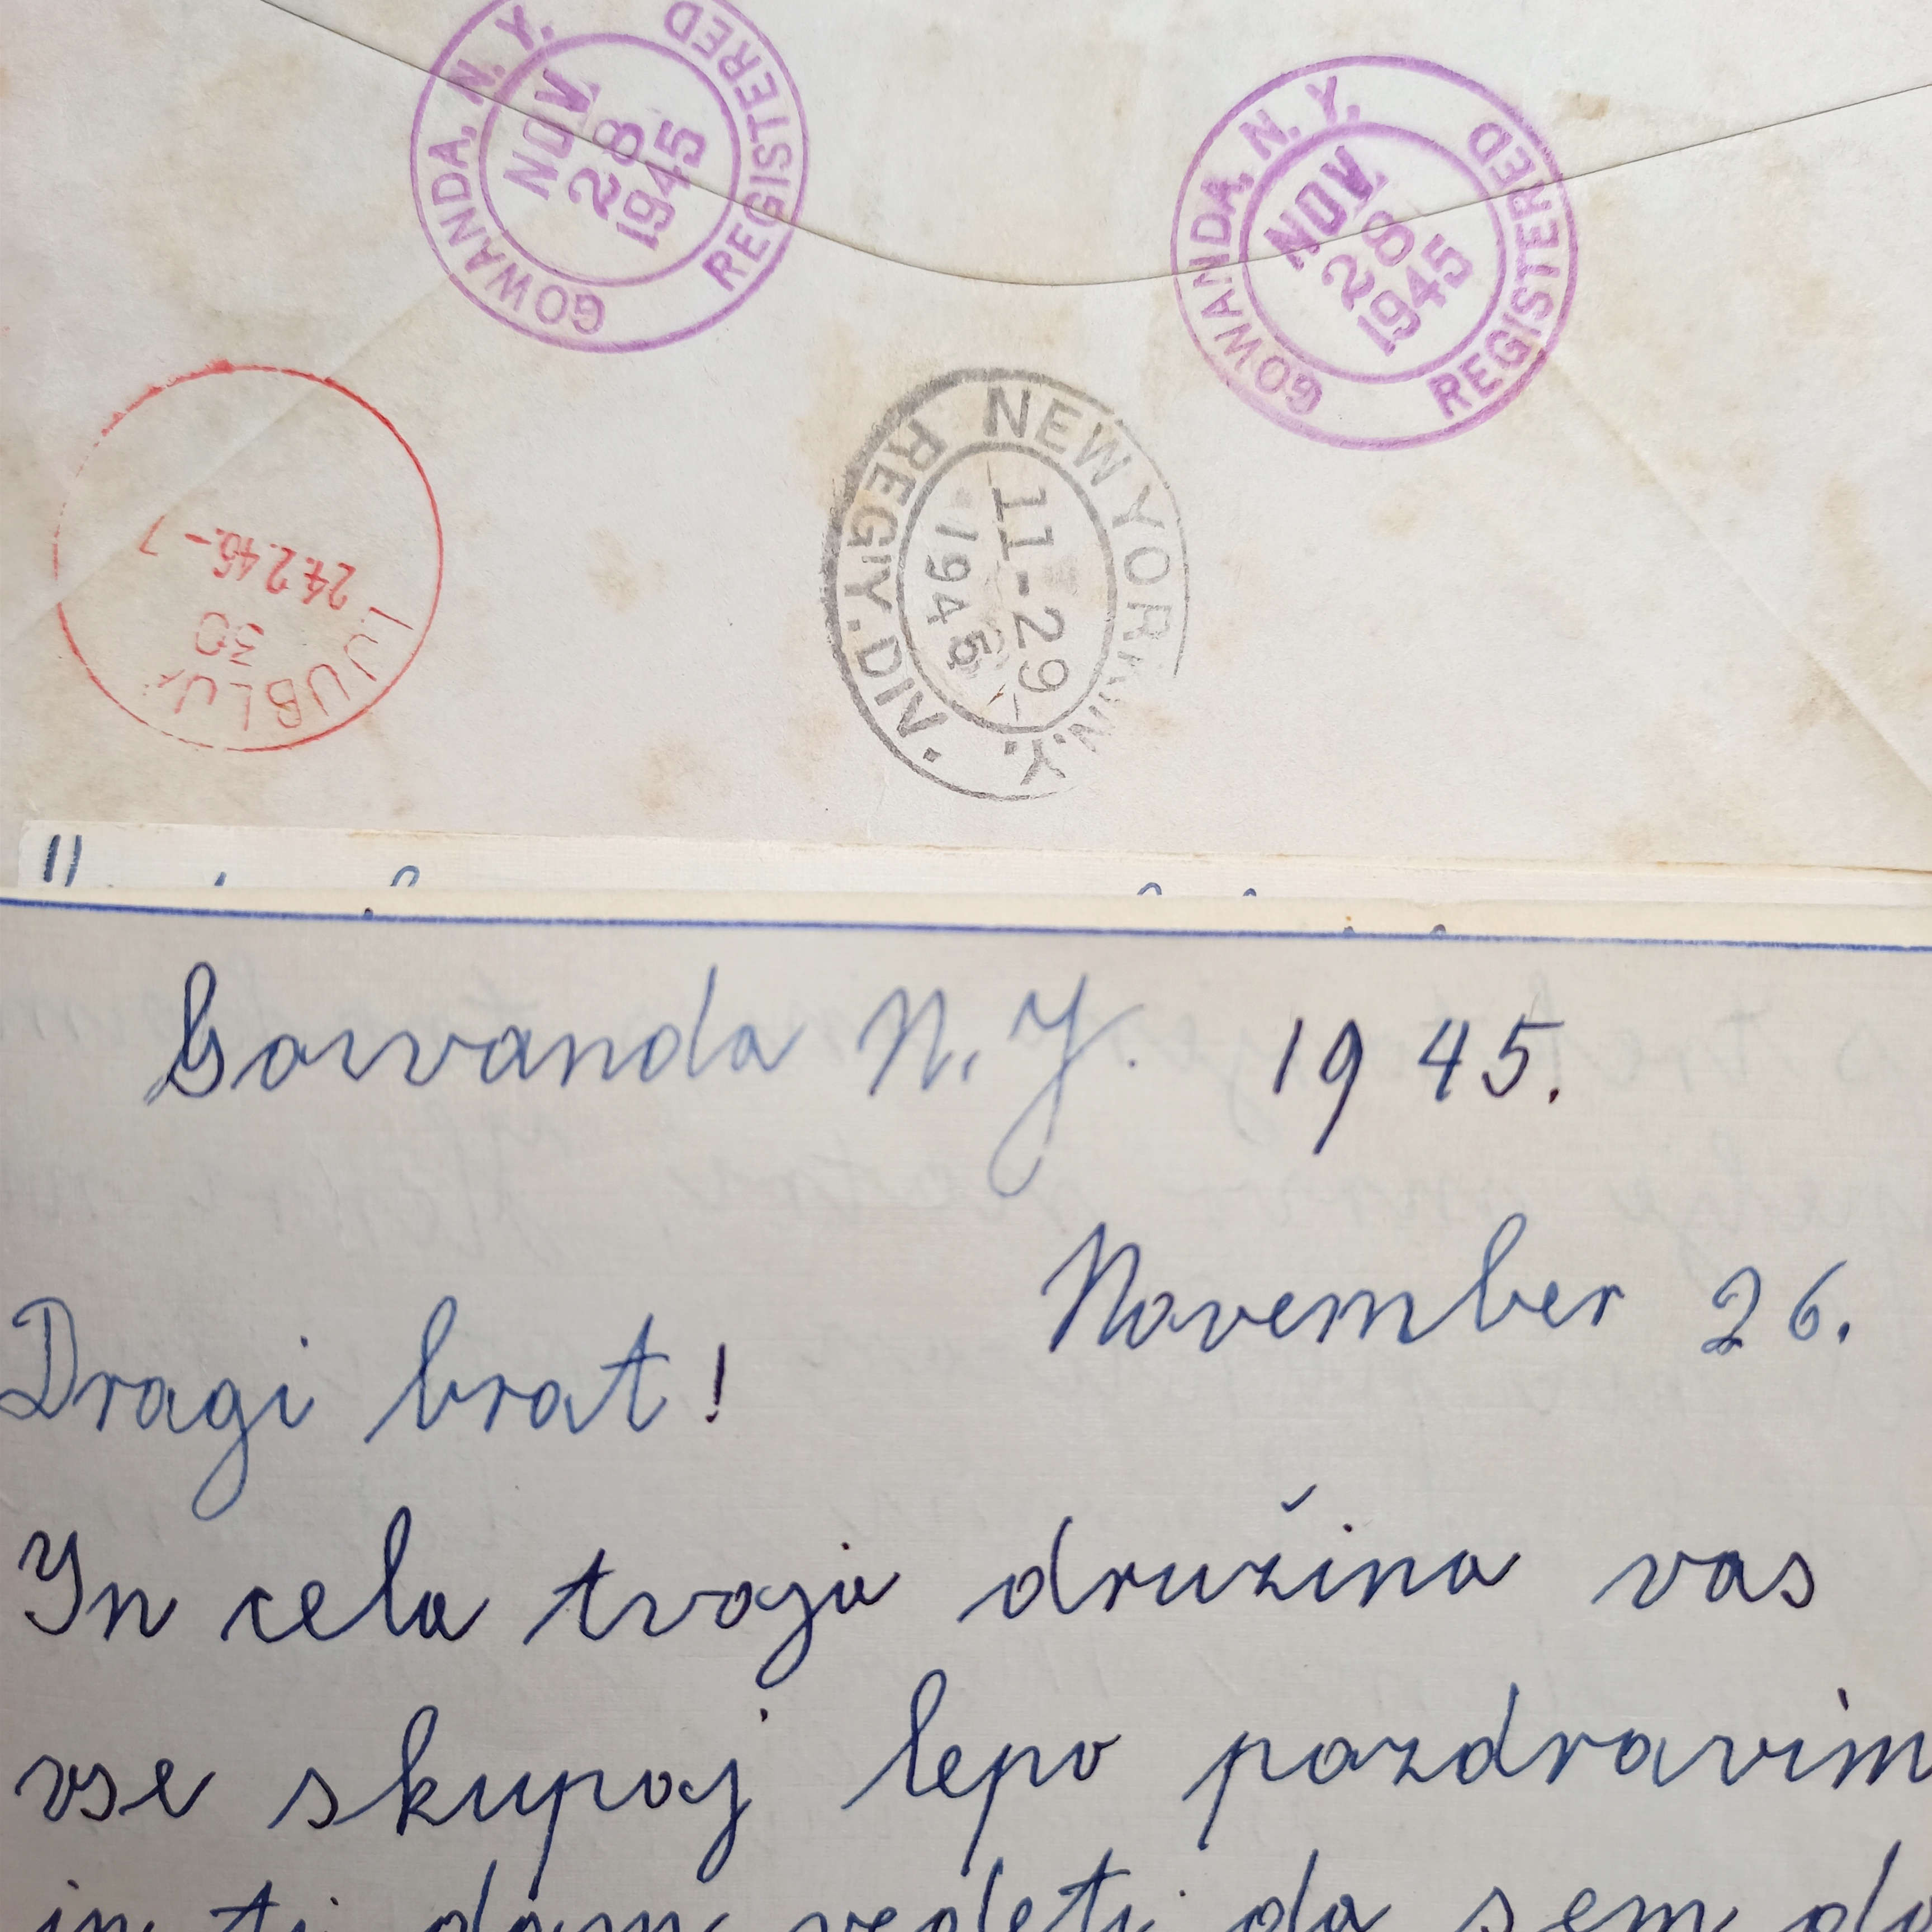 GOWANDA, N. Y.
REGISTERED
NOV.
28
1945
GOWANDA, N. Y.
REGISTERED
NOV.
28
1945
NEW YORK, N.Y.
REG'Y. DIV.
11-29
1945
30
24.2.46.-7
Gowanda N. Y. 1945.
November 26.
Dragi brat!
In cela tvoja družina vas
vse skupaj lepo pozdravim
in ti dam vedeti da sem